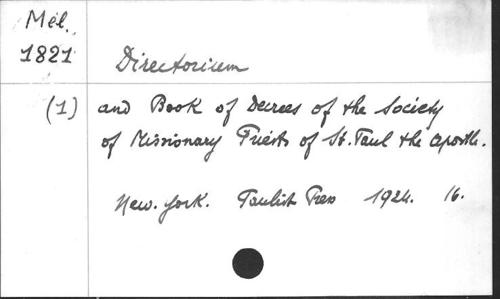 Mél.
1821
Directorium
(1) and Book of Decrees of the Society
of Missionary Priests of St. Paul the Apostle.
New. York. Paulist Press 1924. 16.